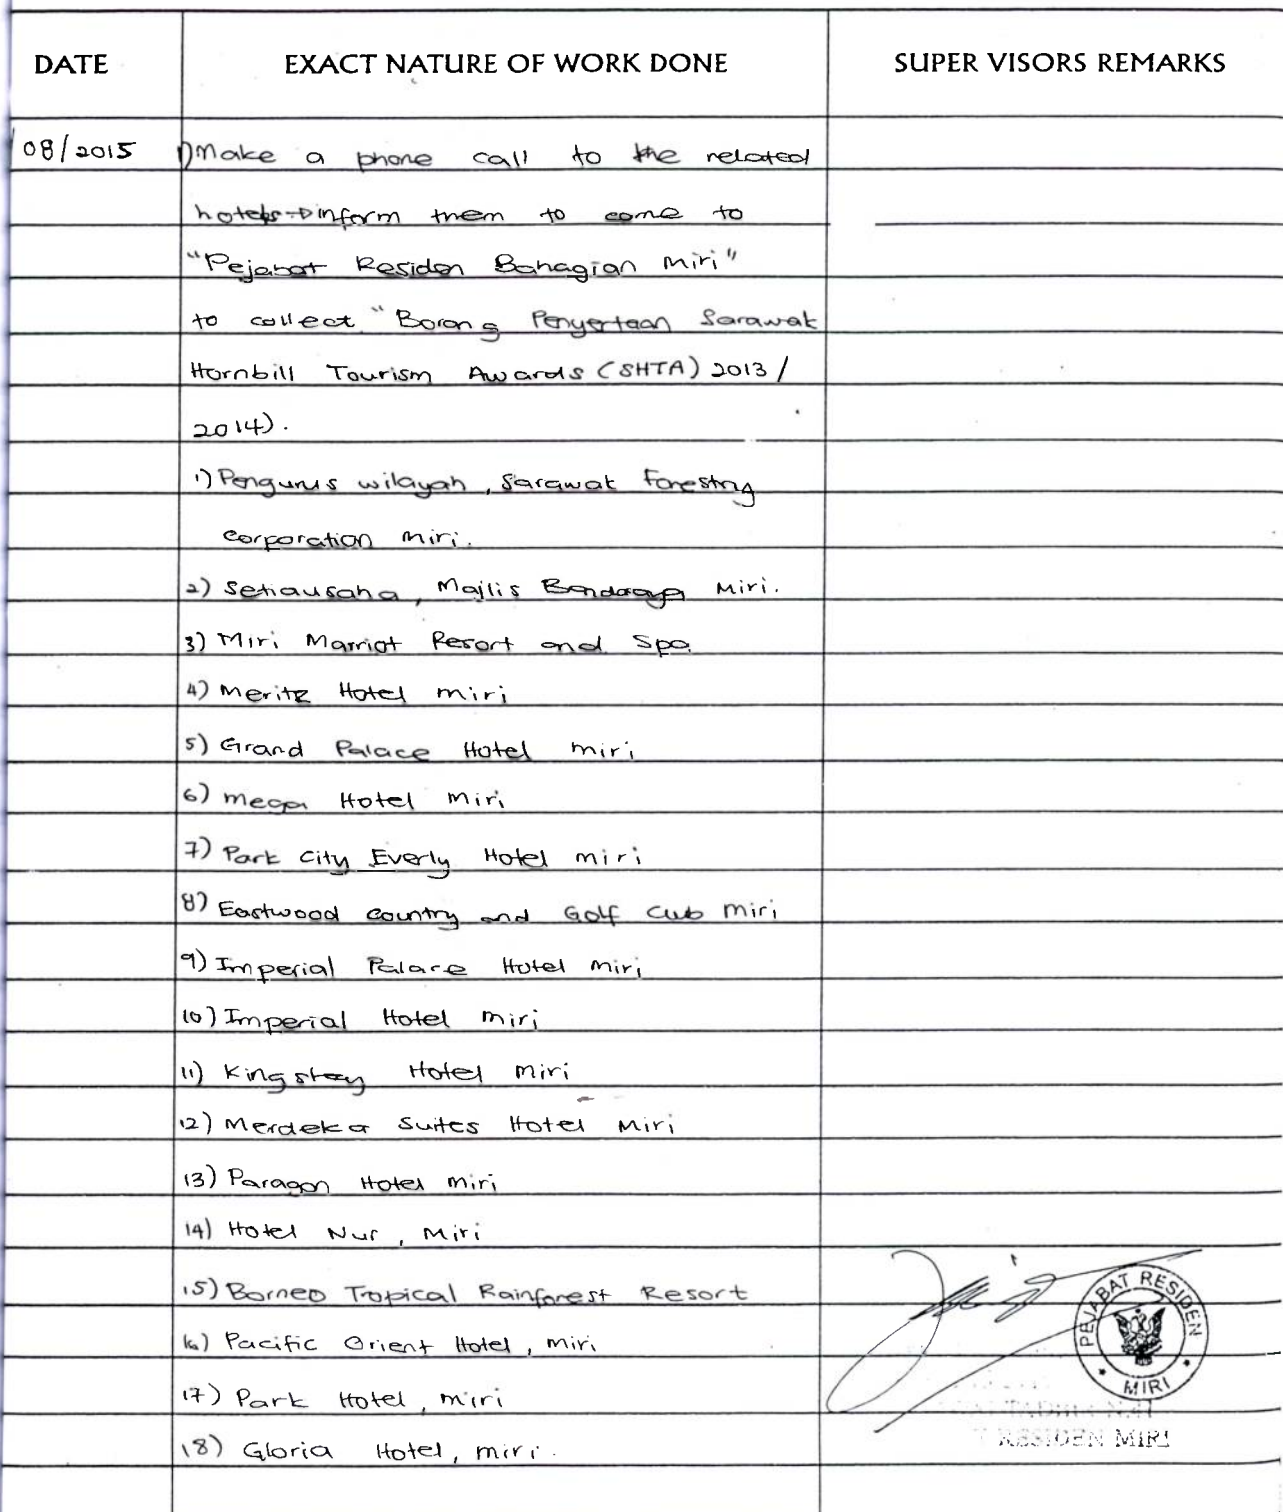 DATE EXACT NATURE OF WORK DONE SUPER VISORS REMARKS
/08/2015 1)Make a phone call to the related
hotels→inform them to come to
"Pejabat Residen Bahagian Miri"
to collect "Borang Penyertaan Sarawak
Hornbill Tourism Awards (SHTA) 2013/
2014).
1) Pengurus wilayah, Sarawak Forestry
corporation miri.
2) Setiausaha, Majlis Bandaraya Miri.
3) Miri Marriot Resort and Spa.
4) Meritz Hotel miri
5) Grand Palace Hotel miri
6) mega Hotel Miri
7) Park City Everly Hotel miri
8) Eastwood country and Golf Cub Miri
9) Imperial Palace Hotel Miri
10) Imperial Hotel Miri
11) Kingstay Hotel Miri
12) Merdeka Suites Hotel Miri
13) Paragon Hotel Miri
14) Hotel Nur, Miri
15) Borneo Tropical Rainforest Resort
16) Pacific Orient Hotel, Miri
17) Park Hotel, miri
18) Gloria Hotel, miri.
PEJABAT RESIDEN
MIRI
RESIDEN MIRI